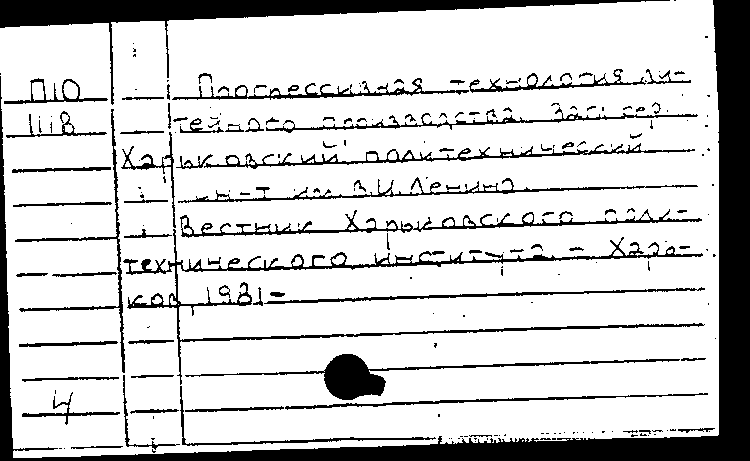 П10 Прогрессивная технология ли-
1118 тейного производства. Загл. сер.
Харьковский политехнический
ин-т им. В.И. Ленина.
Вестник Харьковского поли-
технического института. - Харь-
ков, 1981-
4